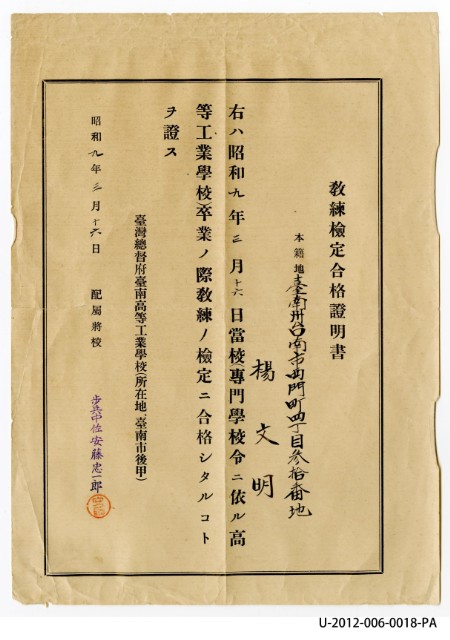 教練檢定合格證明書
本籍地臺南州台南市西門町四丁目参拾番地
楊文明
右ハ昭和九年三月十六日當校專門學校令ニ依ル高
等工業學校卒業ノ際教練ノ檢定ニ合格シタルコト
ヲ證ス
臺灣總督府臺南高等工業學校(所在地、臺南市後甲)
昭和九年三月十六日
配屬將校
步兵中佐安藤忠一郎
U-2012-006-0018-PA